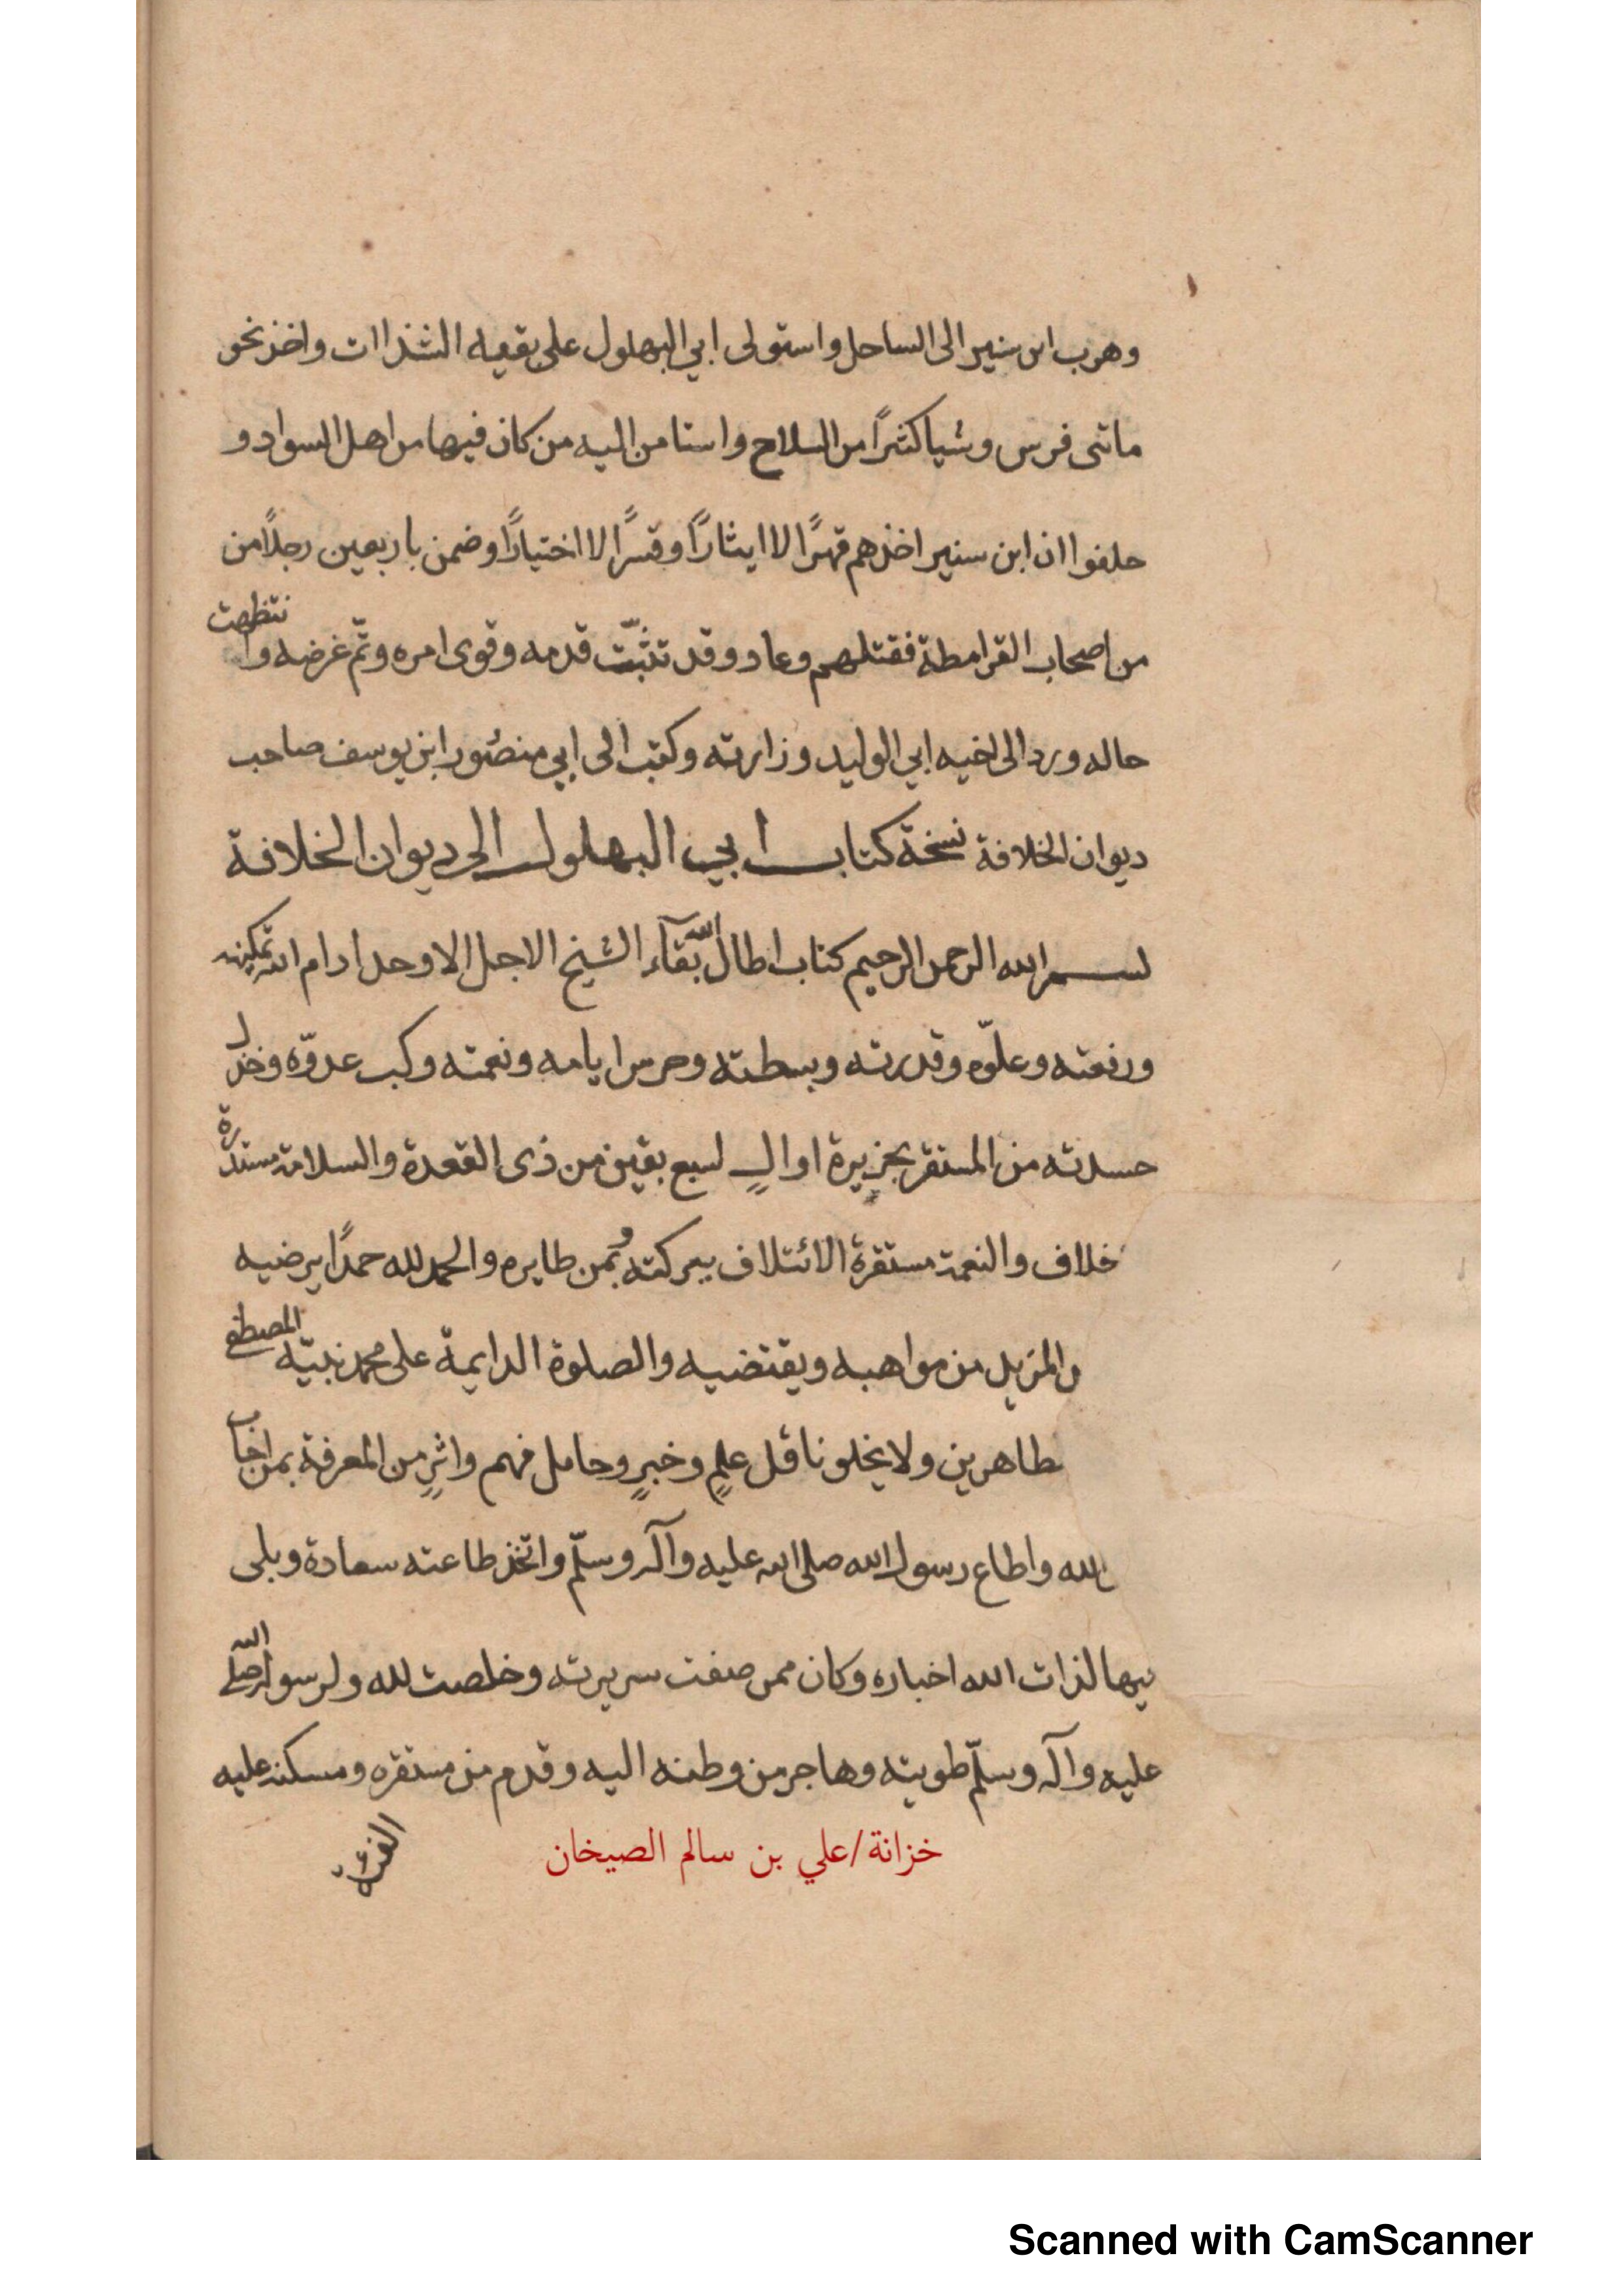 وهرب ابن سنير الى الساحل واستولى ابي البهلول على بقيه الشذاات واخذ نحو
ماتى فرس وشيا كثيرًا من السلاح واستامن اليه من كان فيها من اهل السواد و
حلفوا ان ابن سنير اخذهم قهرًا لا ايثارًا وقسرًا لا اختيارًا وضمن باربعين رجلًا من
من اصحاب القرامطة فقتلهم وعاد وقد تثبّت قدمه وقوى امره وتمّ غرضه وانتظمت
حاله ورد الى اخيه ابي الوليد وزارته وكتب الى ابي منصُور ابن يوسف صاحب
ديوان الخلافة نسخة كتاب ابي البهلول الى ديوان الخلافة
بسم الله الرحمن الرحيم كتاب اطال الله بقآء الشيخ الاجل الاوحد ادام الله تمكينه
ورفعته وعلوّه وقدرته وبسطته وحرس ايامه ونعمته وكبت عدوّه وخذل
حسدته من المستقر بجزيرة اوالٍ لسبع بقين من ذى القعدة والسلامة مستدرة
خلاف والنعمة مستقرة الائتلاف ببركته ويمن طايره والحمد لله حمدًا يرضيه
والمزيل من مواهبه ويقتضيه والصلوة الدايمة على محمد نبيّه المصطفى
طاهرين ولا يخلو ناقل علمٍ وخبرٍ وحامل فهم واثرٍ من المعرفة بمن اجاب
لله واطاع رسول الله صلى الله عليه وآله وسلّم واتخذ طاعته سعادة وبلى
فيها لذات الله اخباره وكان ممن صفت سريرته وخلصت لله ولرسوله صلى الله
عليه وآله وسلّم طويته وهاجر من وطنه اليه وقدم من مستقره ومسكنه عليه
خزانة/علي بن سالم الصيخان
Scanned with CamScanner